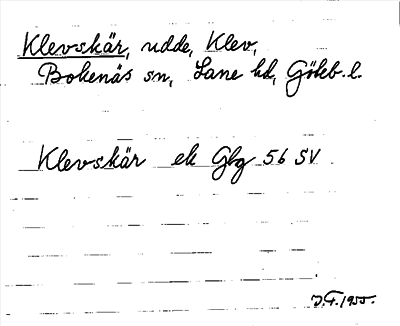 Klevskär, udde, Klev,
Bokenäs sn, Lane hd, Göteb. l.
Klevskär ek Gbg 56 SV
J.F. 1955.